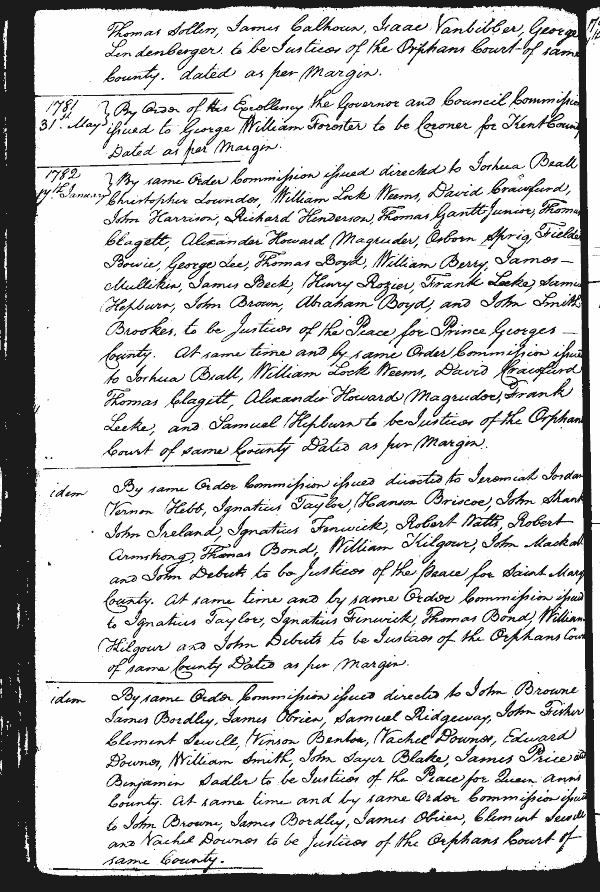 Thomas Sollers, James Calhoun, Isaac Vanbibber, George
Lindenberger. to be Justices of the Orphans Court of same
County. dated as per Margin.
1781
31st. May } By Order of His Excellency the Governor and Council Commission
issued to George William Forester to be Coroner for Kent County
Dated as per Margin.
1782
17th January } By same Order Commission issued directed to Joshua Beall
Christopher Lowndes, William Lock Weems, David Crawfurd,
John Harrison, Richard Henderson, Thomas Gantt Junior, Thomas
Clagett, Alexander Howard Magruder, Osborn Sprig, Fielder
Bowie, George Lee, Thomas Boyd, William Berry, James
Mullikin, James Beck, Henry Rozier, Frank Leeke, Samu
Hepburn, John Brown, Abraham Boyd, and John Smith
Brookes. to be Justices of the Peace for Prince Georges
County. At same time and by same Order Commission issued
to Joshua Beall, William Lock Weems, David Crawfurd
Thomas Clagett, Alexander Howard Magruder, Frank
Leeke, and Samuel Hepburn to be Justices of the Orphan
Court of same County Dated as per Margin.
idem By same Order Commission issued directed to Jeremiah Jordan
Vernon Hebb, Ignatius Taylor, Hanson Briscoe, John Shank
John Ireland, Ignatius Fenwick, Robert Watts, Robert
Armstrong, Thomas Bond, William Kilgour, John Mackall
and John Debutts to be Justices of the Peace for Saint Mary
County. At same time and by same Order Commission issued
to Ignatius Taylor, Ignatius Fenwick, Thomas Bond, William
Kilgour and John Debutts to be Justices of the Orphans Cour
of same County Dated as per Margin.
idem By same Order Commission issued directed to John Browne
James Bordley, James Obrien, Samuel Ridgeway, John Fisher
Clement Sewell, Vinson Benton, Vachel Downes, Edward
Downes, William Smith, John Sayer Blake, James Price and
Benjamin Sadler to be Justices of the Peace for Queen Anns
County. At same time and by same Order Commission issued
to John Browne, James Bordley, James Obrien, Clement Sewell
and Vachel Downes to be Justices of the Orphans Court of
same County.